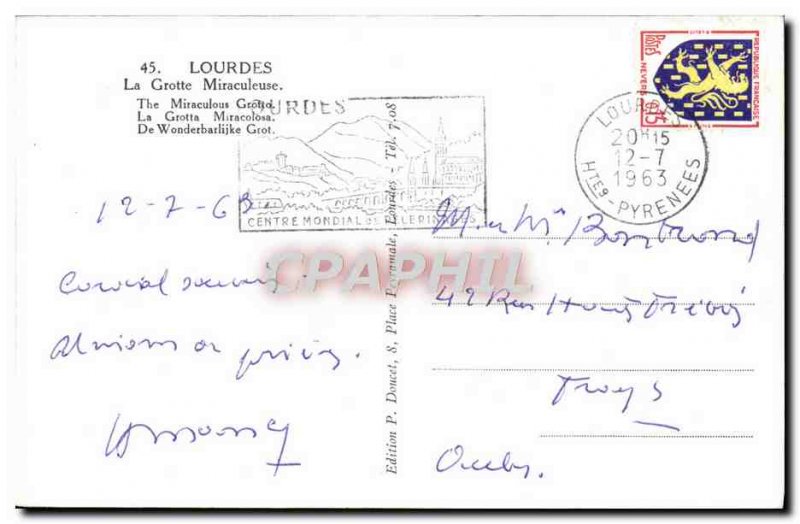 45. LOURDES
La Grotte Miraculeuse.
The Miraculous Grotto.
La Grotta Miracolosa.
De Wonderbarlijke Grot.
OURDES
CENTRE MONDIAL DE PELERINAGES
Edition P. Doucet, 8, Place Peyramale, Lourdes - Tél. 7.08
POSTES
REPUBLIQUE FRANÇAISE
NEVERS
0,15
LOURDES
20H15
12-7
1963
HTES-PYRENEES
CPAPHIL
12-7-63
Cordial souvenir
Unions de prières.
M. et Me
42 Rue
Troyes
Aube.